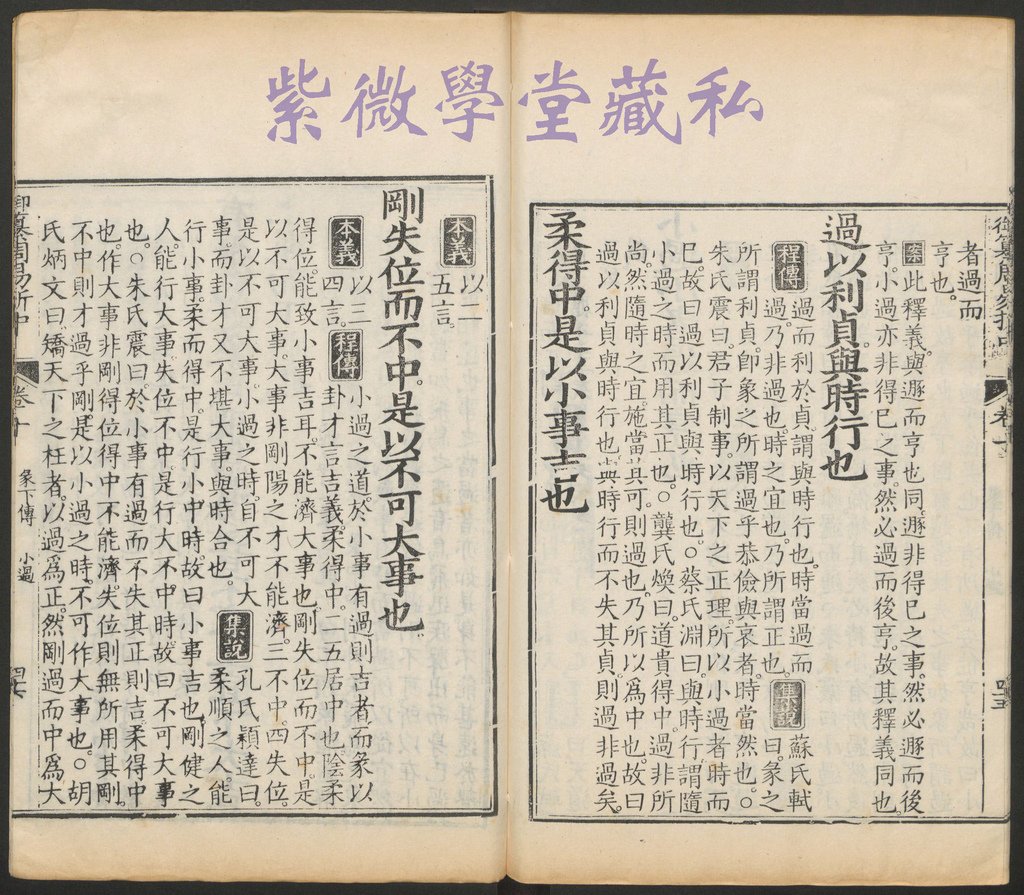 紫微學堂藏私
御纂周易折中
卷十
者過而
亨也。
案此釋義與遯而亨也同。遯非得已之事。然必遯而後
亨。小過亦非得已之事。然必過而後亨。故其釋義同也
過以利貞與時行也
程傳 過而利於貞。謂與時行也。時當過而 集說 蘇氏軾
過乃非過也。時之宜也。乃所謂正也。 曰。彖之
所謂利貞。卽象之所謂過乎恭儉與哀者。時當然也。○
朱氏震曰。君子制事。以天下之正理。所以小過者時而
已。故曰過以利貞與時行也。○蔡氏淵曰。與時行。謂隨
小過之時。而用其正也。○龔氏煥曰。道貴得中。過非所
尚。然隨時之宜。施當其可。則過也。乃所以為中也。故曰
過以利貞。與時行也。與時行而不失其貞。則過非過矣
柔得中是以小事吉也
本義 以二
五言。
剛失位而不中是以不可大事也
本義 以三 程傳 小過之道。於小事有過則吉者。而彖以
四言。 卦才言吉義。柔得中。二五居中也。陰柔
得位。能致小事吉耳。不能濟大事也。剛失位而不中。是
以不可大事。大事非剛陽之才不能濟。三不中。四失位。
是以不可大事。小過之時。自不可大 集說 孔氏穎達曰。
事。而卦才又不堪大事。與時合也。 柔順之人。能
行小事。柔而得中。是行小中時。故曰小事吉也。剛健之
人。能行大事。失位不中。是行大不中時。故曰不可大事
也。○朱氏震曰。於小事有過而不失其正則吉。柔得中
也。作大事非剛得位得中不能濟。失位則無所用其剛。
不中則才過乎剛。是以小過之時。不可作大事也。○胡
氏炳文曰。矯天下之枉者。以過為正。然剛過而中為大
御纂周易折中
卷十
彖下傳 小過